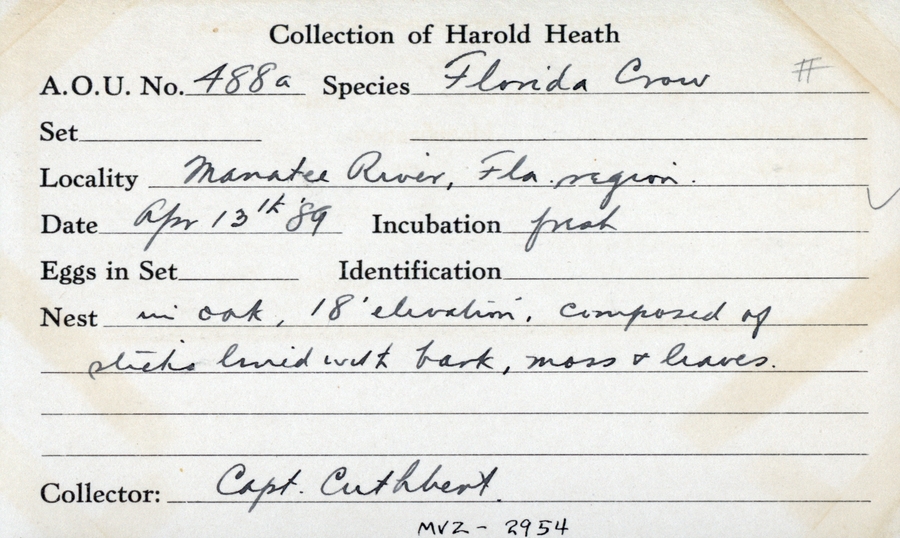 Collection of Harold Heath
A.O.U. No. 488a Species Florida Crow #
Set
Locality Manatee River, Fla. region.
Date Apr 13th '89 Incubation fresh
Eggs in Set Identification
Nest in oak, 18' elevation, composed of
sticks lined with bark, moss & leaves.
Collector: Capt. Cuthbert.
MVZ - 2954